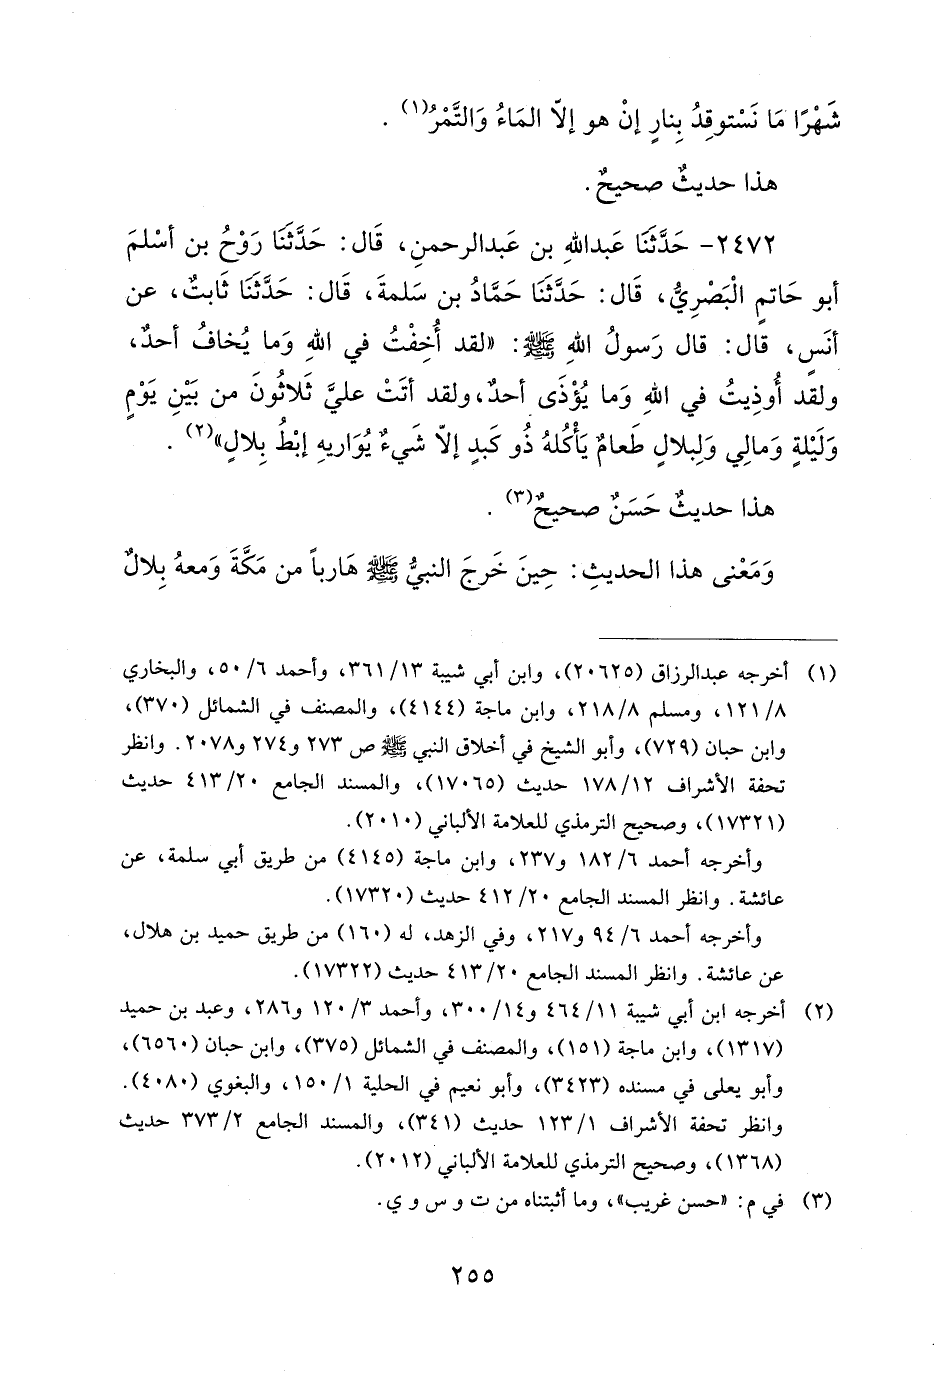 شَهْرًا مَا نَسْتوقِدُ بِنارٍ إنْ هو إلاّ المَاءُ وَالتَّمْرُ(١) .
هذا حديثٌ صحيحٌ.
٢٤٧٢- حَدَّثَنَا عَبداللهِ بن عَبدالرحمنِ، قَال: حَدَّثَنَا رَوْحُ بن أسْلمَ
أبو حَاتمٍ الْبَصْريُّ، قَال: حَدَّثَنَا حَمَّادُ بن سَلمةَ، قَال: حَدَّثَنَا ثَابتٌ، عن
أنَسٍ، قَال: قال رَسولُ اللهِ ﷺ: «لقد أُخِفْتُ في اللهِ وَما يُخافُ أحدٌ،
ولقد أُوذِيتُ في اللهِ وَما يُؤْذَى أحدٌ، ولقد أتَتْ عليَّ ثَلاثُونَ من بَيْنِ يَوْمٍ
وَلَيْلةٍ وَمالِي وَلِبلالٍ طَعامٌ يَأْكُلهُ ذُو كَبدٍ إلاّ شَيءٌ يُوَاريهِ إبْطُ بِلالٍ»(٢) .
هذا حديثٌ حَسَنٌ صحيحٌ(٣) .
وَمَعْنى هذا الحديثِ: حِينَ خَرجَ النبيُّ ﷺ هَارباً من مَكَّةَ وَمعهُ بِلالٌ
(١) أخرجه عبدالرزاق (٢٠٦٢٥)، وابن أبي شيبة ٣٦١/١٣، وأحمد ٥٠/٦، والبخاري
١٢١/٨، ومسلم ٢١٨/٨، وابن ماجة (٤١٤٤)، والمصنف في الشمائل (٣٧٠)،
وابن حبان (٧٢٩)، وأبو الشيخ في أخلاق النبي ﷺ ص ٢٧٣ و٢٧٤ و٢٠٧٨. وانظر
تحفة الأشراف ١٧٨/١٢ حديث (١٧٠٦٥)، والمسند الجامع ٤١٣/٢٠ حديث
(١٧٣٢١)، وصحيح الترمذي للعلامة الألباني (٢٠١٠).
وأخرجه أحمد ١٨٢/٦ و٢٣٧، وابن ماجة (٤١٤٥) من طريق أبي سلمة، عن
عائشة. وانظر المسند الجامع ٤١٢/٢٠ حديث (١٧٣٢٠).
وأخرجه أحمد ٩٤/٦ و٢١٧، وفي الزهد، له (١٦٠) من طريق حميد بن هلال،
عن عائشة. وانظر المسند الجامع ٤١٣/٢٠ حديث (١٧٣٢٢).
(٢) أخرجه ابن أبي شيبة ٤٦٤/١١ و٣٠٠/١٤، وأحمد ١٢٠/٣ و٢٨٦، وعبد بن حميد
(١٣١٧)، وابن ماجة (١٥١)، والمصنف في الشمائل (٣٧٥)، وابن حبان (٦٥٦٠)،
وأبو يعلى في مسنده (٣٤٢٣)، وأبو نعيم في الحلية ١٥٠/١، والبغوي (٤٠٨٠).
وانظر تحفة الأشراف ١٢٣/١ حديث (٣٤١)، والمسند الجامع ٣٧٣/٢ حديث
(١٣٦٨)، وصحيح الترمذي للعلامة الألباني (٢٠١٢).
(٣) في م: «حسن غريب»، وما أثبتناه من ت و س و ي.
٢٥٥